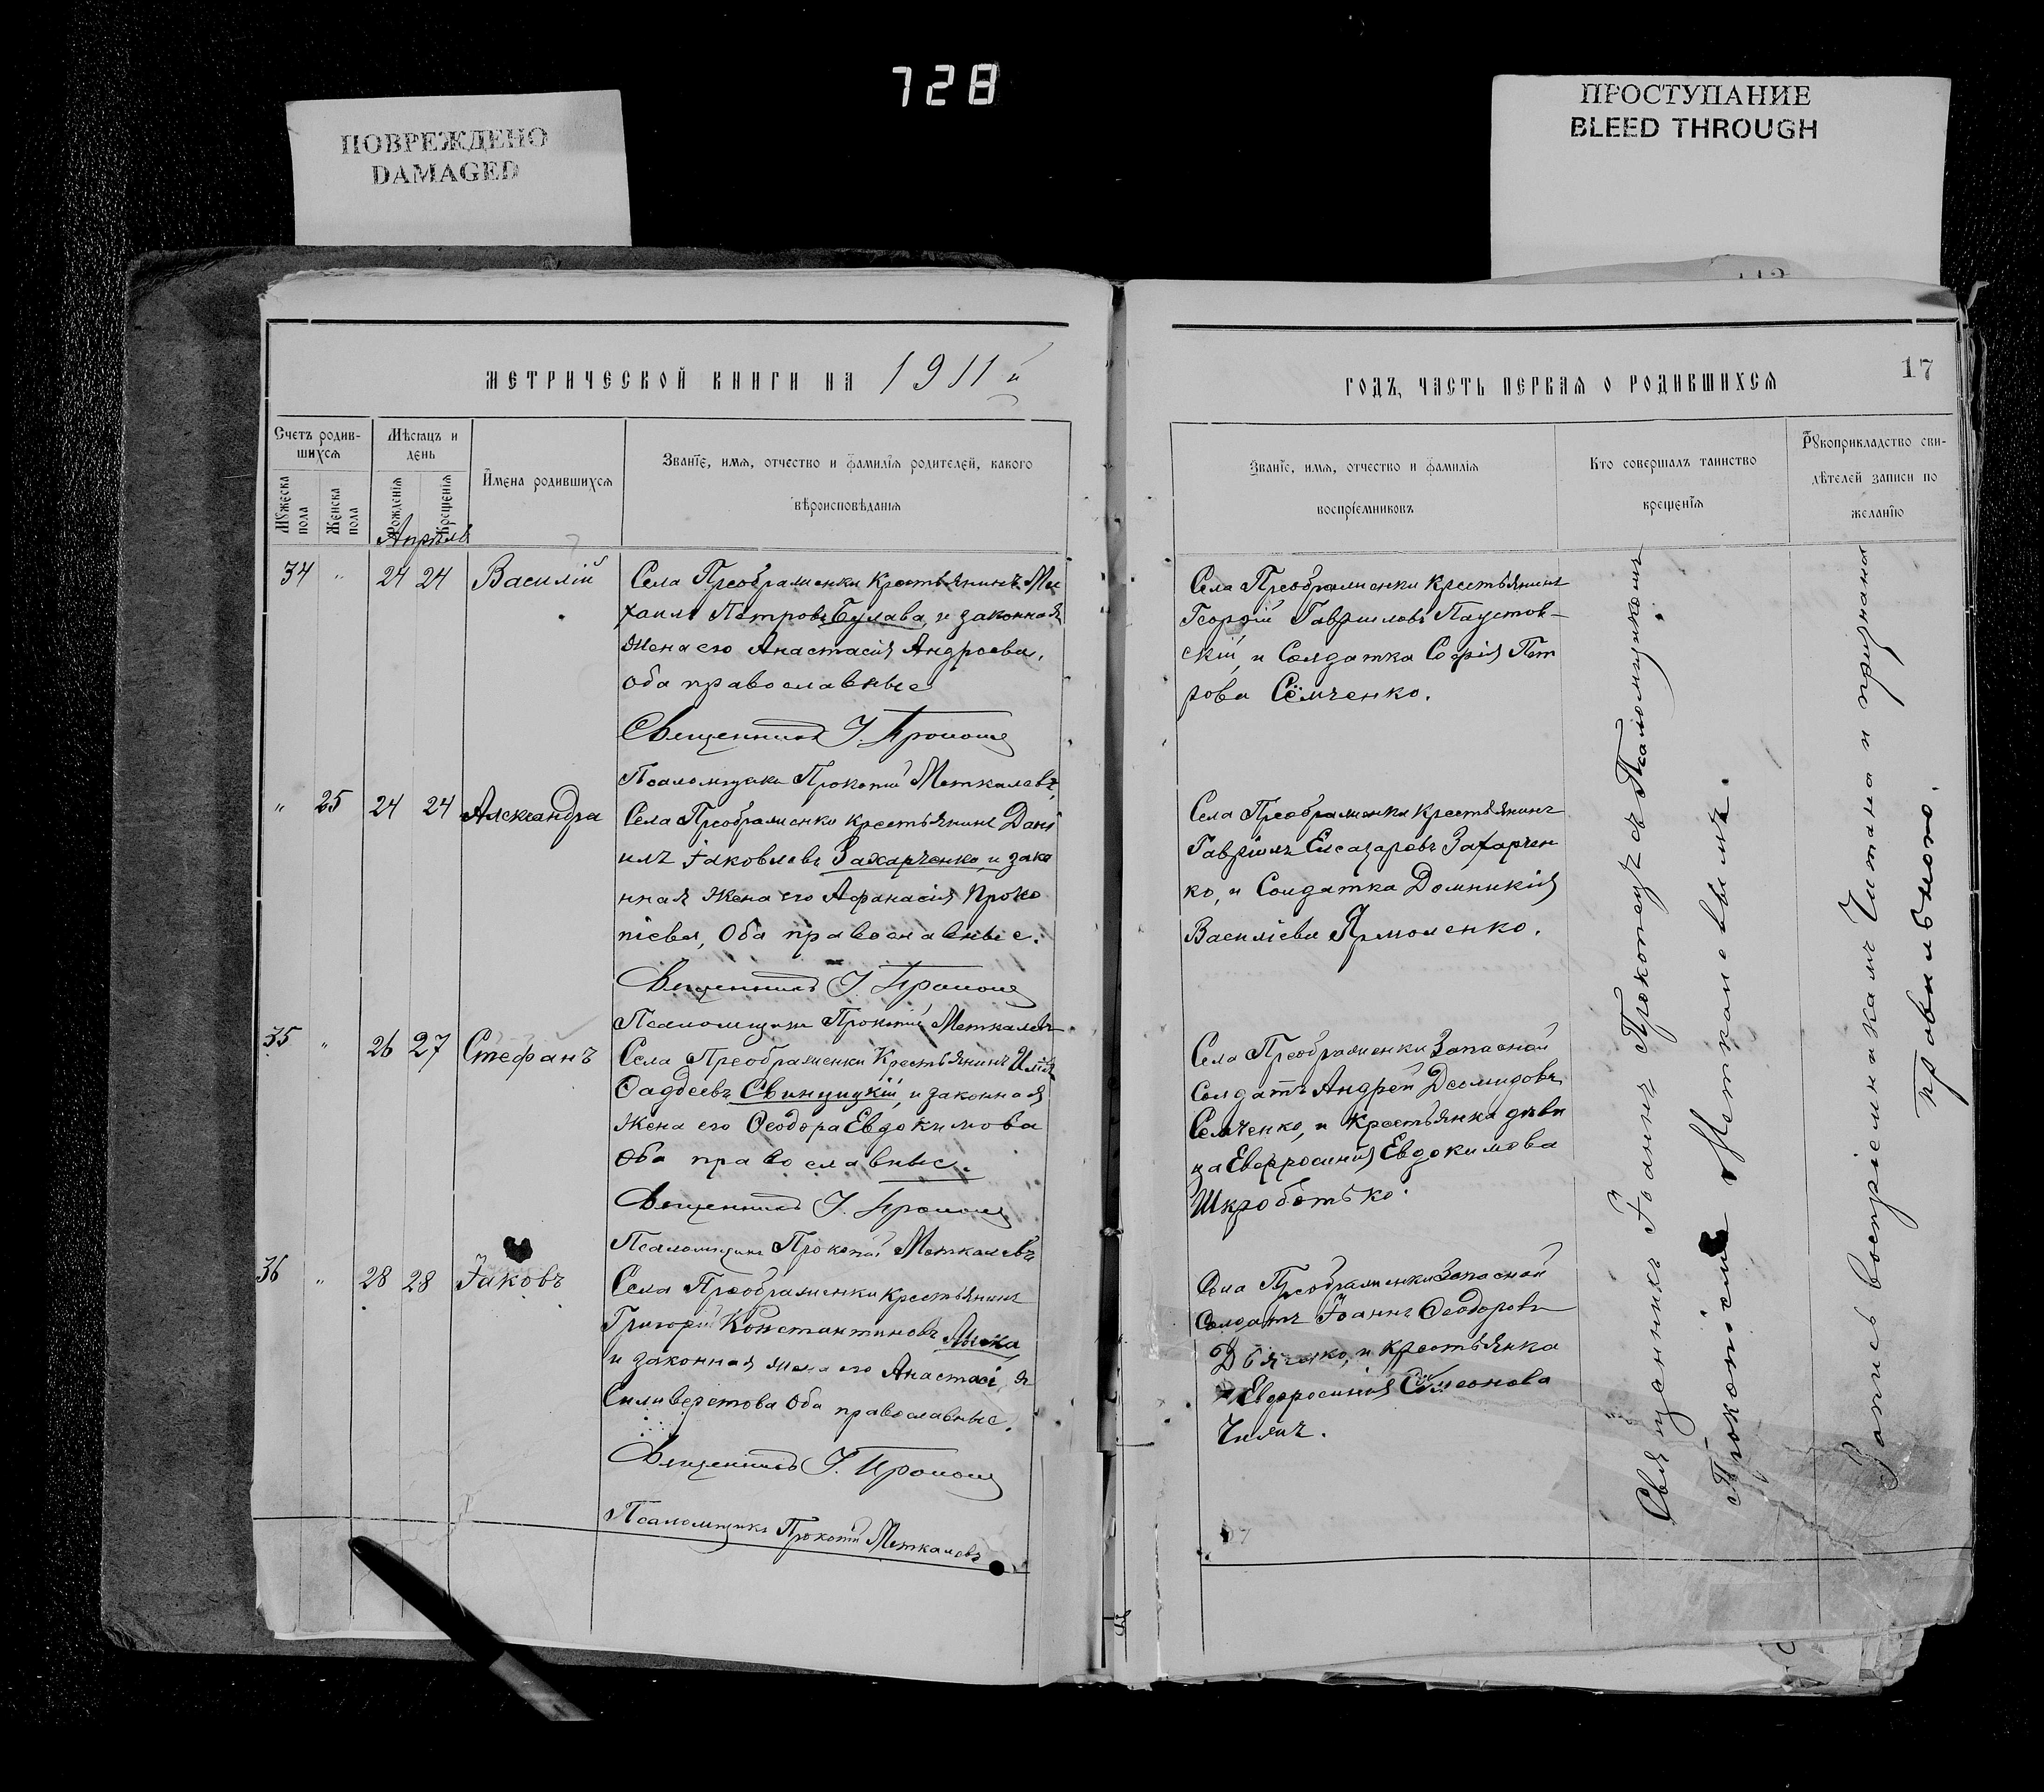 728
ПОВРЕЖДЕНО
DAMAGED
ПРОСТУПАНИЕ
BLEED THROUGH
МЕТРИЧЕСКОЙ КНИГИ НА 1911 й
Счетъ родив-
шихся
Мѣсяцъ и
день
Мужеска
пола
Женска
пола
Рожденія
Крещенія
Имена родившихся
Званіе, имя, отчество и фамилія родителей, какого
вѣроисповѣданія
Апрѣль
34 " 24 24 Василій
Села Преображенки крестьянинъ Ми
хаилъ Петровъ Булава, и законная
жена его Анастасія Андреева,
оба православные
Священникъ І.
Псаломщикъ Прокопій Меткалевъ
" 25 24 24 Александра
Села Преображенки крестьянинъ Дані
илъ Іаковлевъ Захарченко, и зако
нная жена его Афанасія Проко
піева, Оба православные.
Священникъ І.
Псаломщикъ Прокопій Меткалевъ
35 " 26 27 Стефанъ
Села Преображенки Крестьянинъ
Фаддеевъ Свинцицкій, и законная
Жена его Феодора Евдокимова
Оба православные.
Священникъ І.
Псаломщикъ Прокопій Меткалевъ
36 " 28 28 Іаковъ
Села Преображенки крестьянинъ
Григорій Константиновъ
и законная жена его Анастасія
Силиверстова Оба православные.
Священникъ І.
Псаломщикъ Прокопій Меткалевъ
ГОДЪ, ЧАСТЬ ПЕРВАЯ О РОДИВШИХСЯ
17
Званіе, имя, отчество и фамилія
воспріемниковъ
Кто совершалъ таинство
крещенія
Рукоприкладство сви-
дѣтелей записи по
желанію
Села Преображенки Крестьянинъ
Георгій Гавриловъ Паустов-
скій, и Солдатка Софія Пет
рова Сёмченко.
Села Преображенки Крестьянинъ
Гавріилъ Елеазаровъ Захарчен
ко, и Солдатка Домникія
Василіева Ярмоленко.
Села Преображенки Запасной
Солдатъ Андрей Демидовъ
Семченко, и Крестьянка дѣви
ца Евфросинія Евдокимова
Шкроботько.
Села Преображенки Запасной
Солдатъ Іоаннъ Феодоровъ
и крестьянка
Евфросинія Симеонова
Священникъ Іоаннъ съ Псаломщикомъ
Прокопіемъ Меткалевымъ.
Запись воспріемникамъ Читана и признана
правильною.